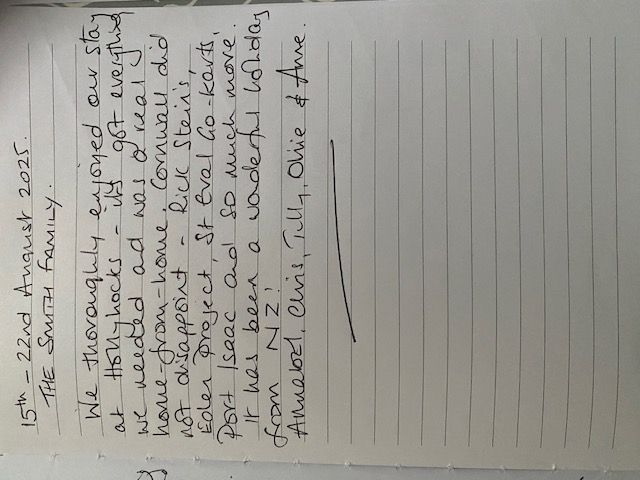 15th – 22nd August 2025.
THE SMITH FAMILY.
We thoroughly enjoyed our stay
at Hollyhocks – its got everything
we needed and was a real
home-from-home. Cornwall did
not disappoint – Rick Stein's,
Eden Project, St Eval Go-Karts,
Port Isaac and so much more.
It has been a wonderful holiday
from NZ!
Annabel, Chris, Tilly, Ollie & Anne.